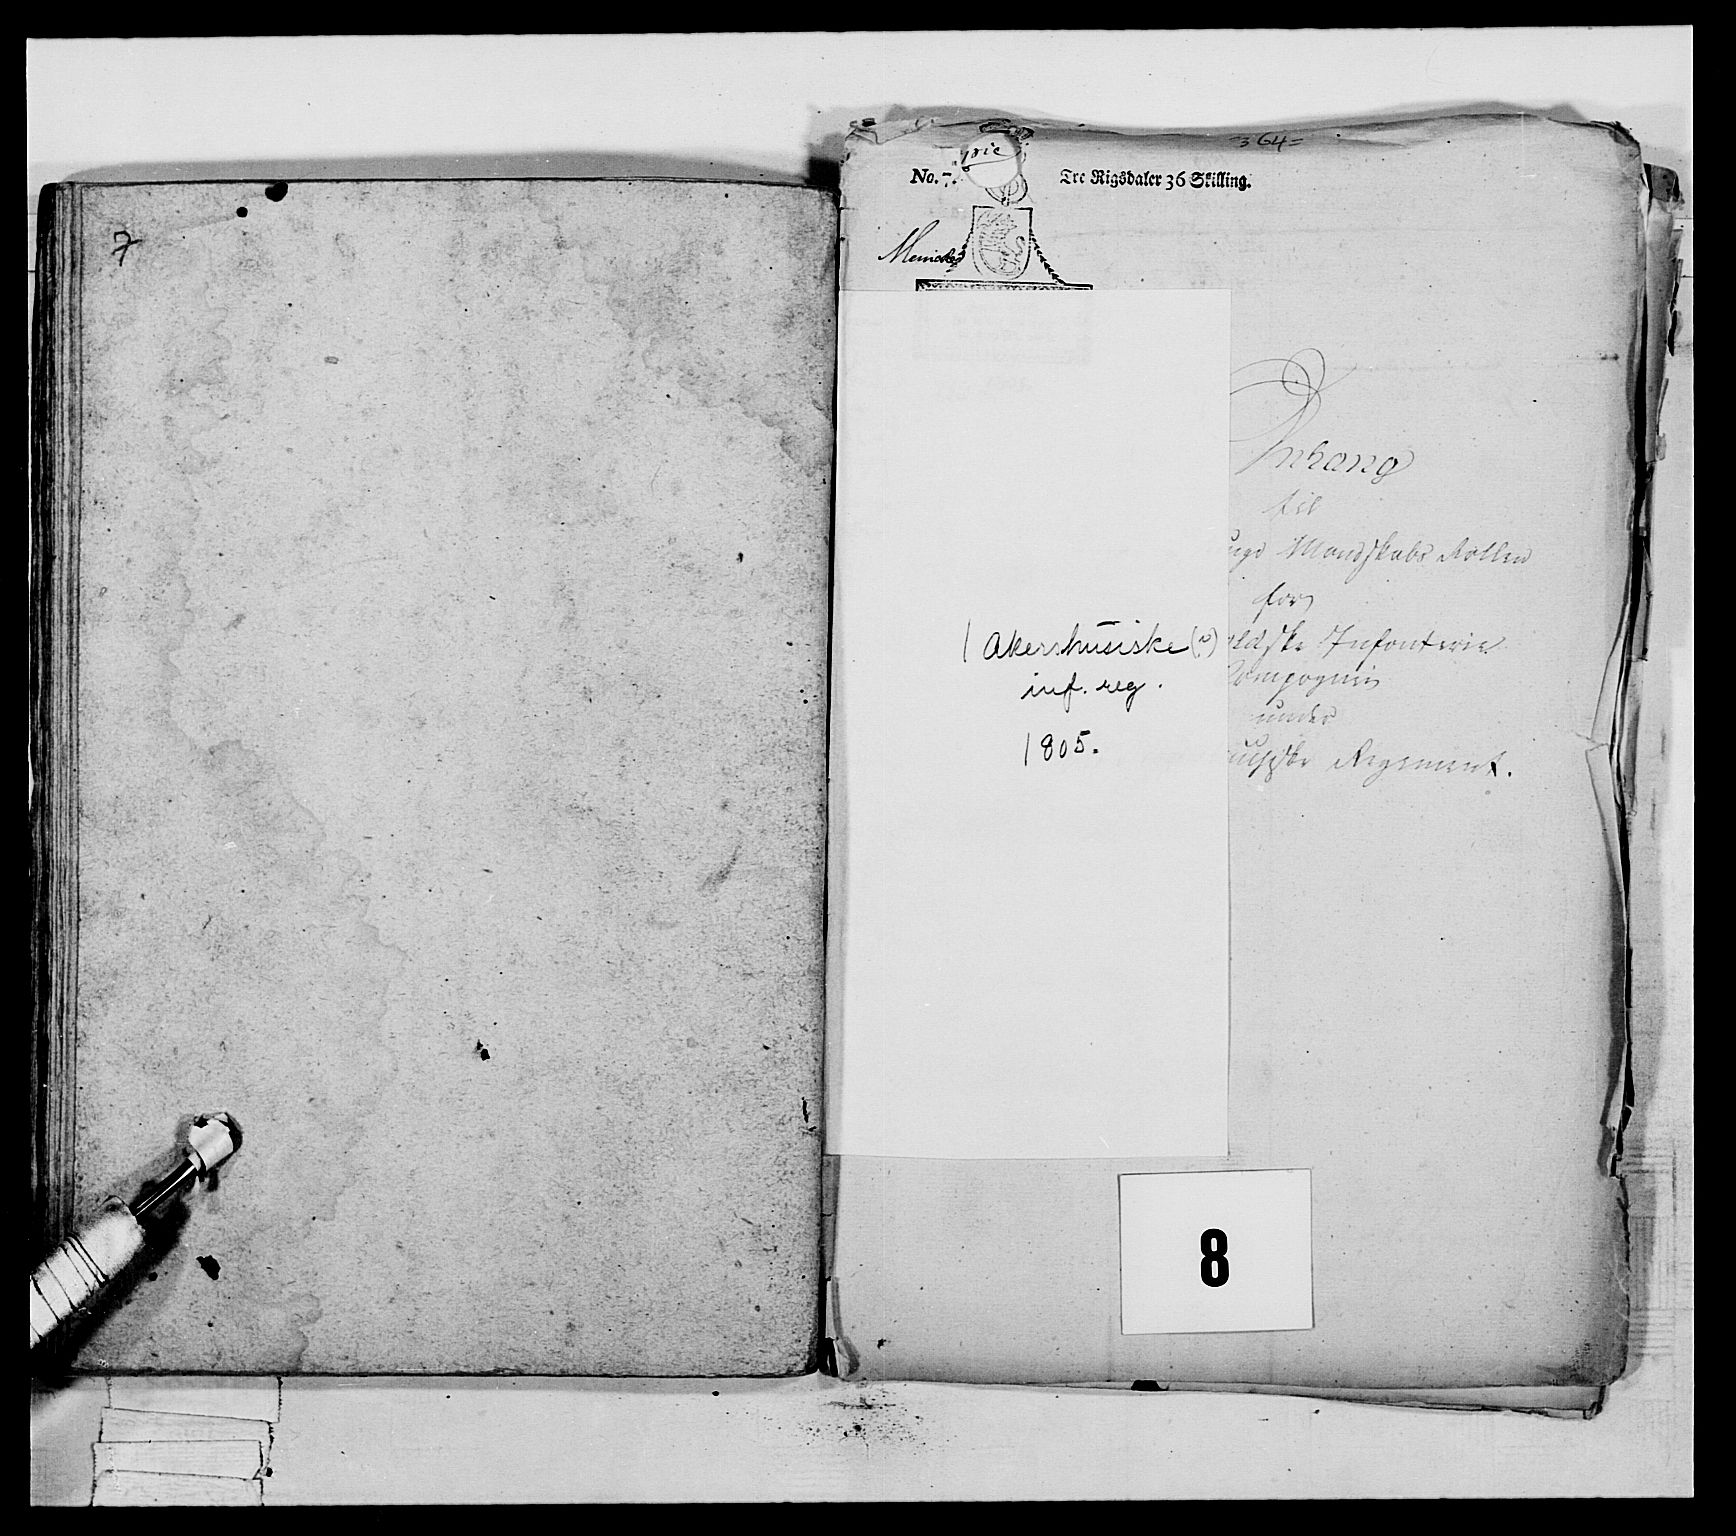 7
364=
No. 7.
Tre Rigsdaler 36 Skilling.
Anhang
til
unge Mandskabs Rollen
for
ldske Infanterie
Compagnie
under
huusiske Regiment.
1 Akershusiske (?)
inf. reg.
1805.
8